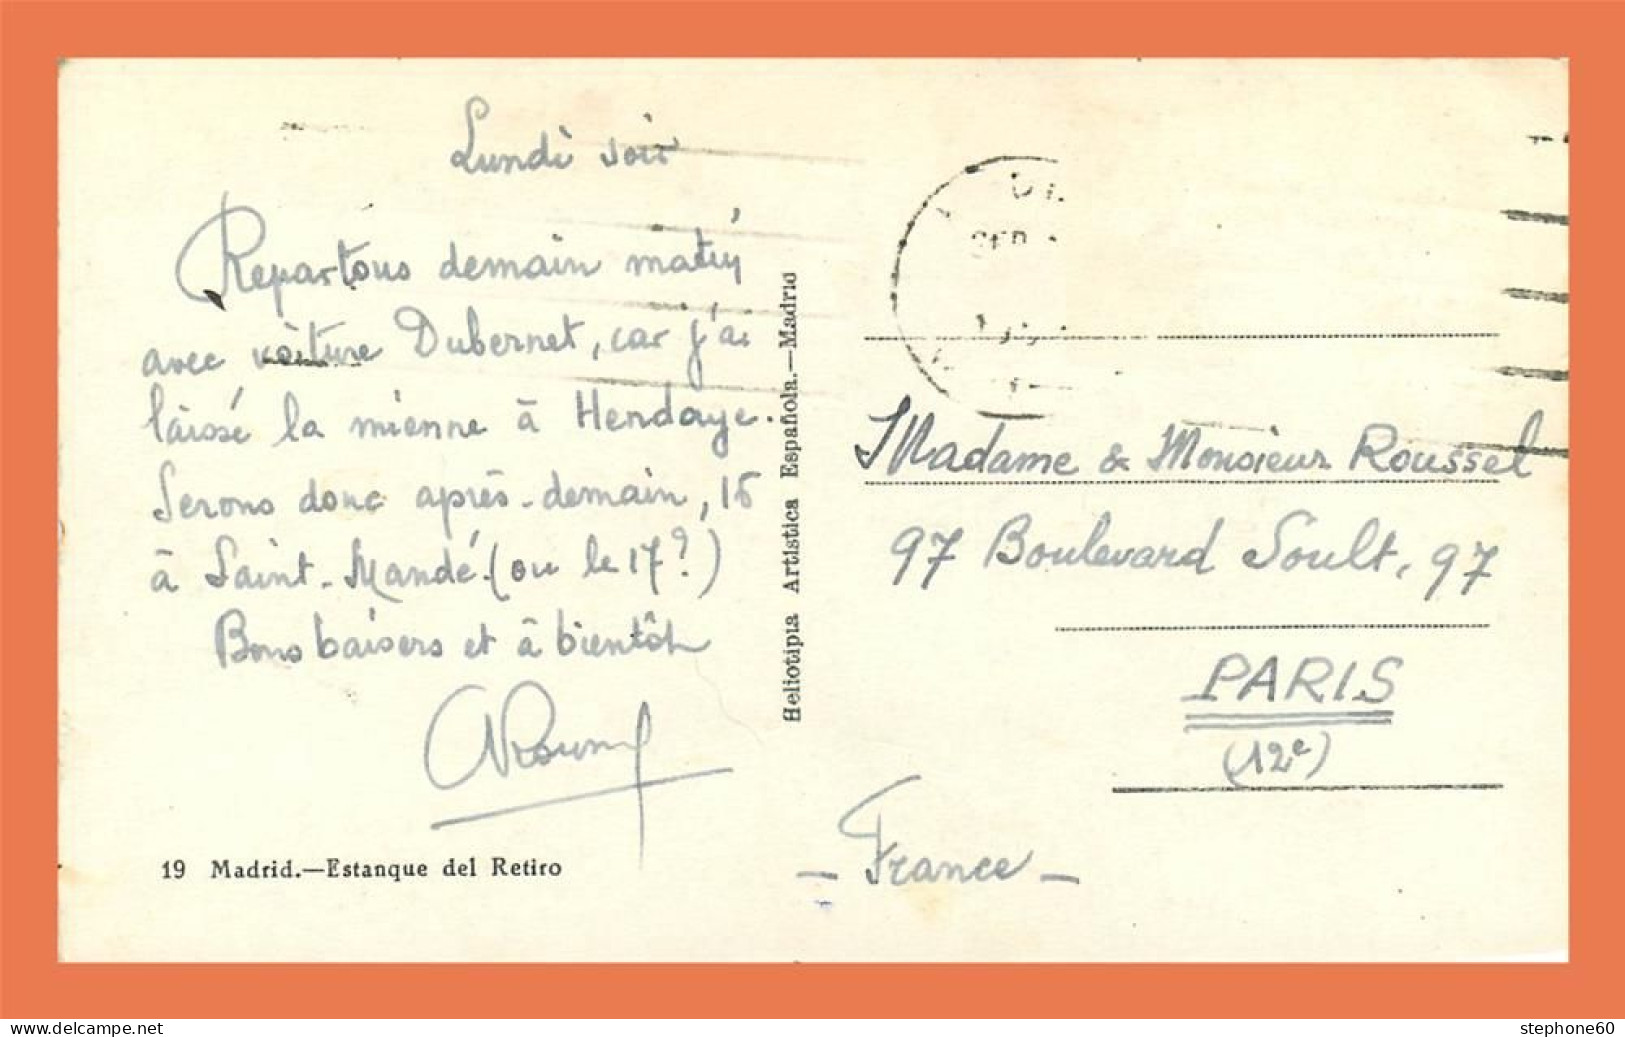 Lundi soir
Repartons demain matin
avec voiture Dubernet, car j'ai
laissé la mienne à Hendaye.
Serons donc après-demain, 16
à Saint-Mandé (ou le 17?)
Bons baisers et à bientôt
19 Madrid.—Estanque del Retiro
Heliotipia Artistica Española.—Madrid
SEP
Madame & Monsieur Roussel
97 Boulevard Soult, 97
PARIS
(12e)
- France -
www.delcampe.net
stephone60